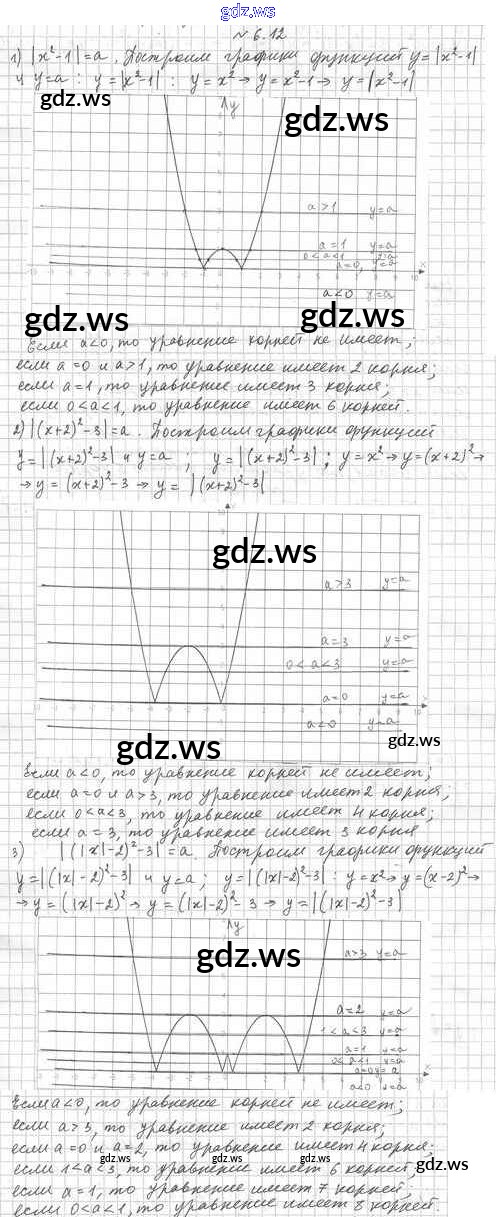 gdz.ws
№ 6.12
1) |x²-1|=a. Построим графики функций y=|x²-1|
и y=a : y=|x²-1| : y=x² → y=x²-1 → y=|x²-1|
gdz.ws
gdz.ws
y
a>1 y=a
a=1 y=a
0<a<1 y=a
a=0, y=a
x
a<0 y=a
gdz.ws
gdz.ws
Если a<0, то уравнение корней не имеет;
если a=0 и a>1, то уравнение имеет 2 корня;
если a=1, то уравнение имеет 3 корня;
если 0<a<1, то уравнение имеет 6 корней.
2) |(x+2)²-3|=a. Построим графики функций
y=|(x+2)²-3| и y=a ; y=|(x+2)²-3| ; y=x² → y=(x+2)² →
→ y=(x+2)²-3 → y=|(x+2)²-3|
gdz.ws
a>3 y=a
a=3 y=a
0<a<3 y=a
a=0 y=a
a<0 y=a
gdz.ws
gdz.ws
Если a<0, то уравнение корней не имеет;
если a=0 и a>3, то уравнение имеет 2 корня;
если 0<a<3, то уравнение имеет 4 корня;
если a=3, то уравнение имеет 3 корня
3) |(|x|-2)²-3|=a. Построим графики функций
y=|(|x|-2)²-3| и y=a; y=|(|x|-2)²-3| : y=x² → y=(x-2)² →
→ y=(|x|-2)² → y=(|x|-2)²-3 → y=|(|x|-2)²-3|
y
gdz.ws
a>3 y=a
a=2 y=a
1<a<3 y=a
a=1 y=a
0<a<1 y=a
a=0 y=a
x
a<0 y=a
Если a<0, то уравнение корней не имеет;
если a>3, то уравнение имеет 2 корня;
если a=0 и a=2, то уравнение имеет 4 корня;
если 1<a<3, то уравнение имеет 6 корней;
gdz.ws
если a=1, то уравнение имеет 7 корней;
если 0<a<1, то уравнение имеет 8 корней.
gdz.ws